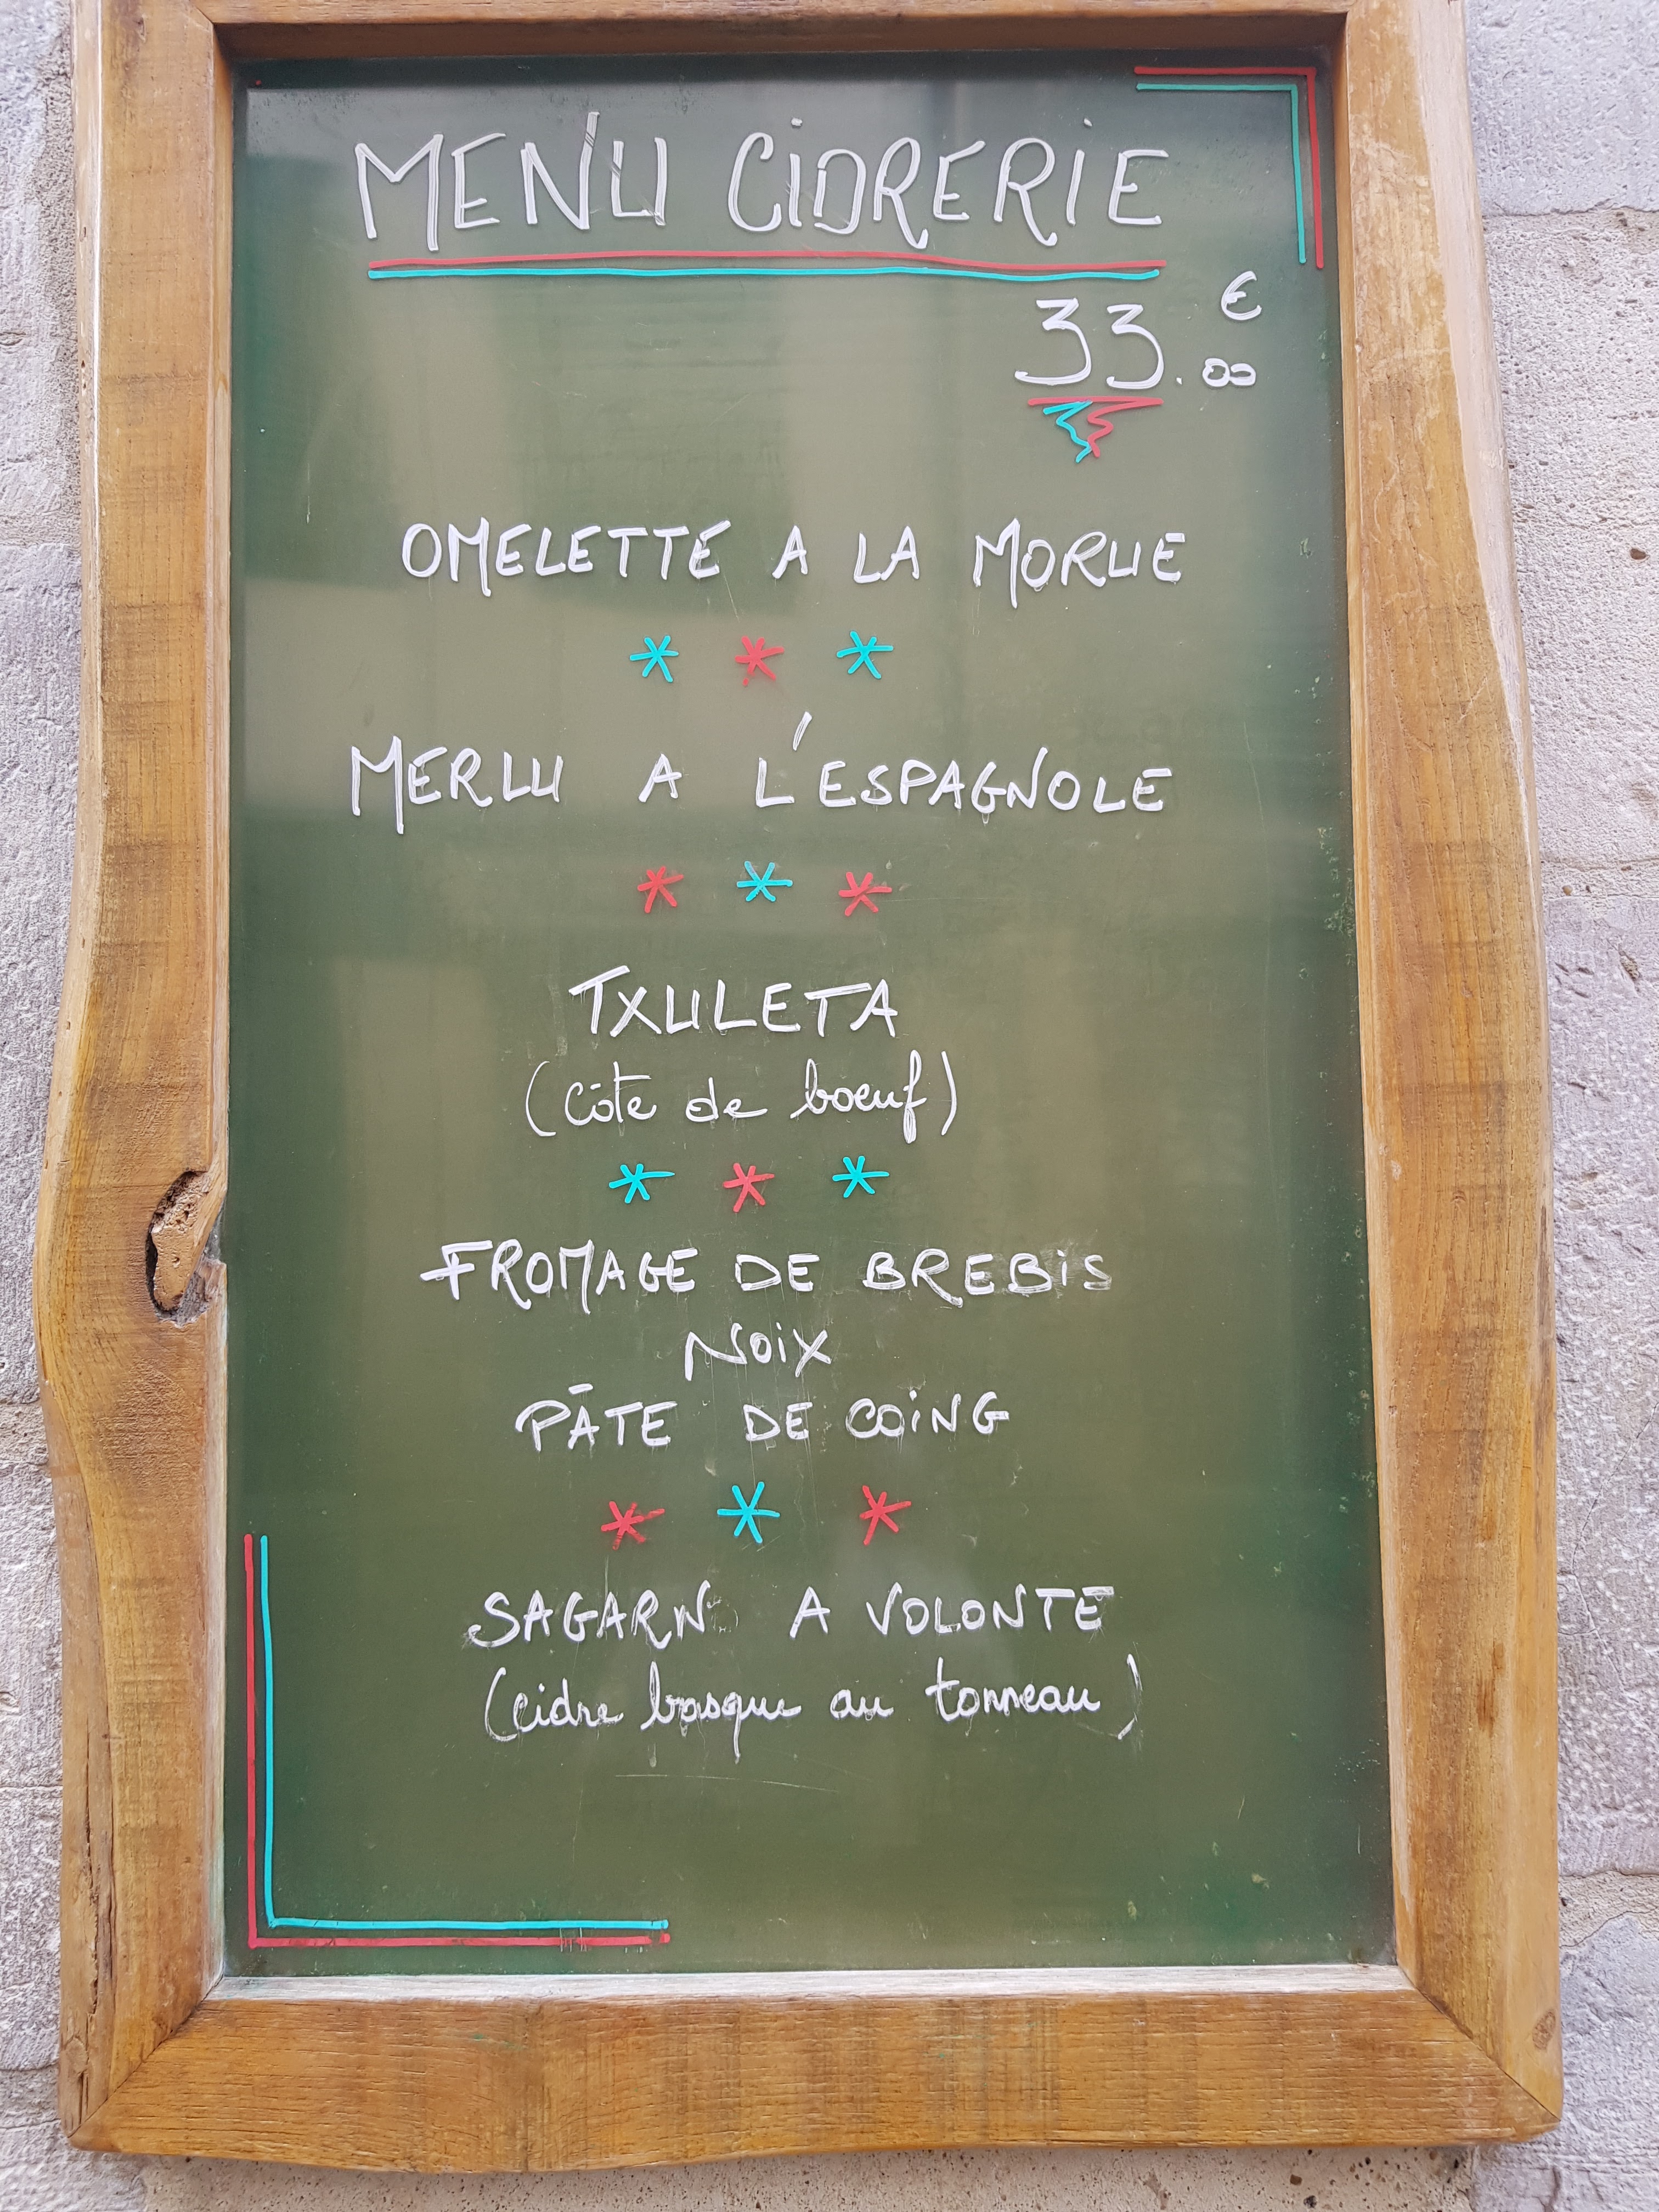 MENU CIDRERIE
33.00 €
OMELETTE A LA MORUE
* * *
MERLU A L'ESPAGNOLE
* * *
TXULETA
(côte de boeuf)
* * *
FROMAGE DE BREBIS
NOIX
PÂTE DE COING
* * *
SAGARN A VOLONTE
(cidre basque au tonneau)